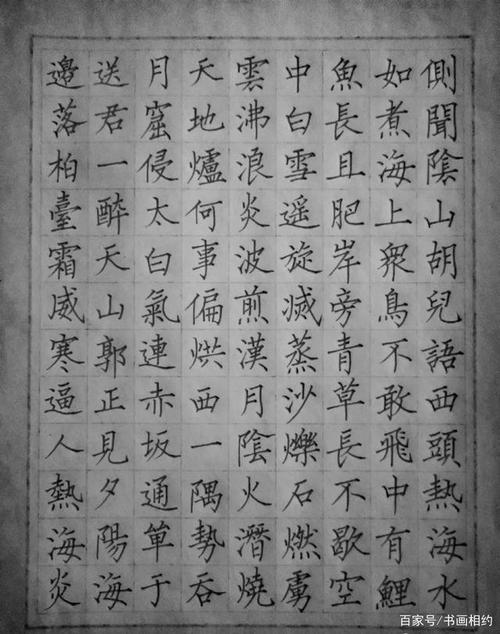 側聞陰山胡兒語西頭熱海水
如煮海上衆鳥不敢飛中有鯉
魚長且肥岸旁青草長不歇空
中白雪遥旋滅蒸沙爍石燃虜
雲沸浪炎波煎漢月陰火潛燒
天地爐何事偏烘西一隅勢吞
月窟侵太白氣連赤坂通單于
送君一醉天山郭正見夕陽海
邊落柏臺霜威寒逼人熱海炎
百家号/书画相约